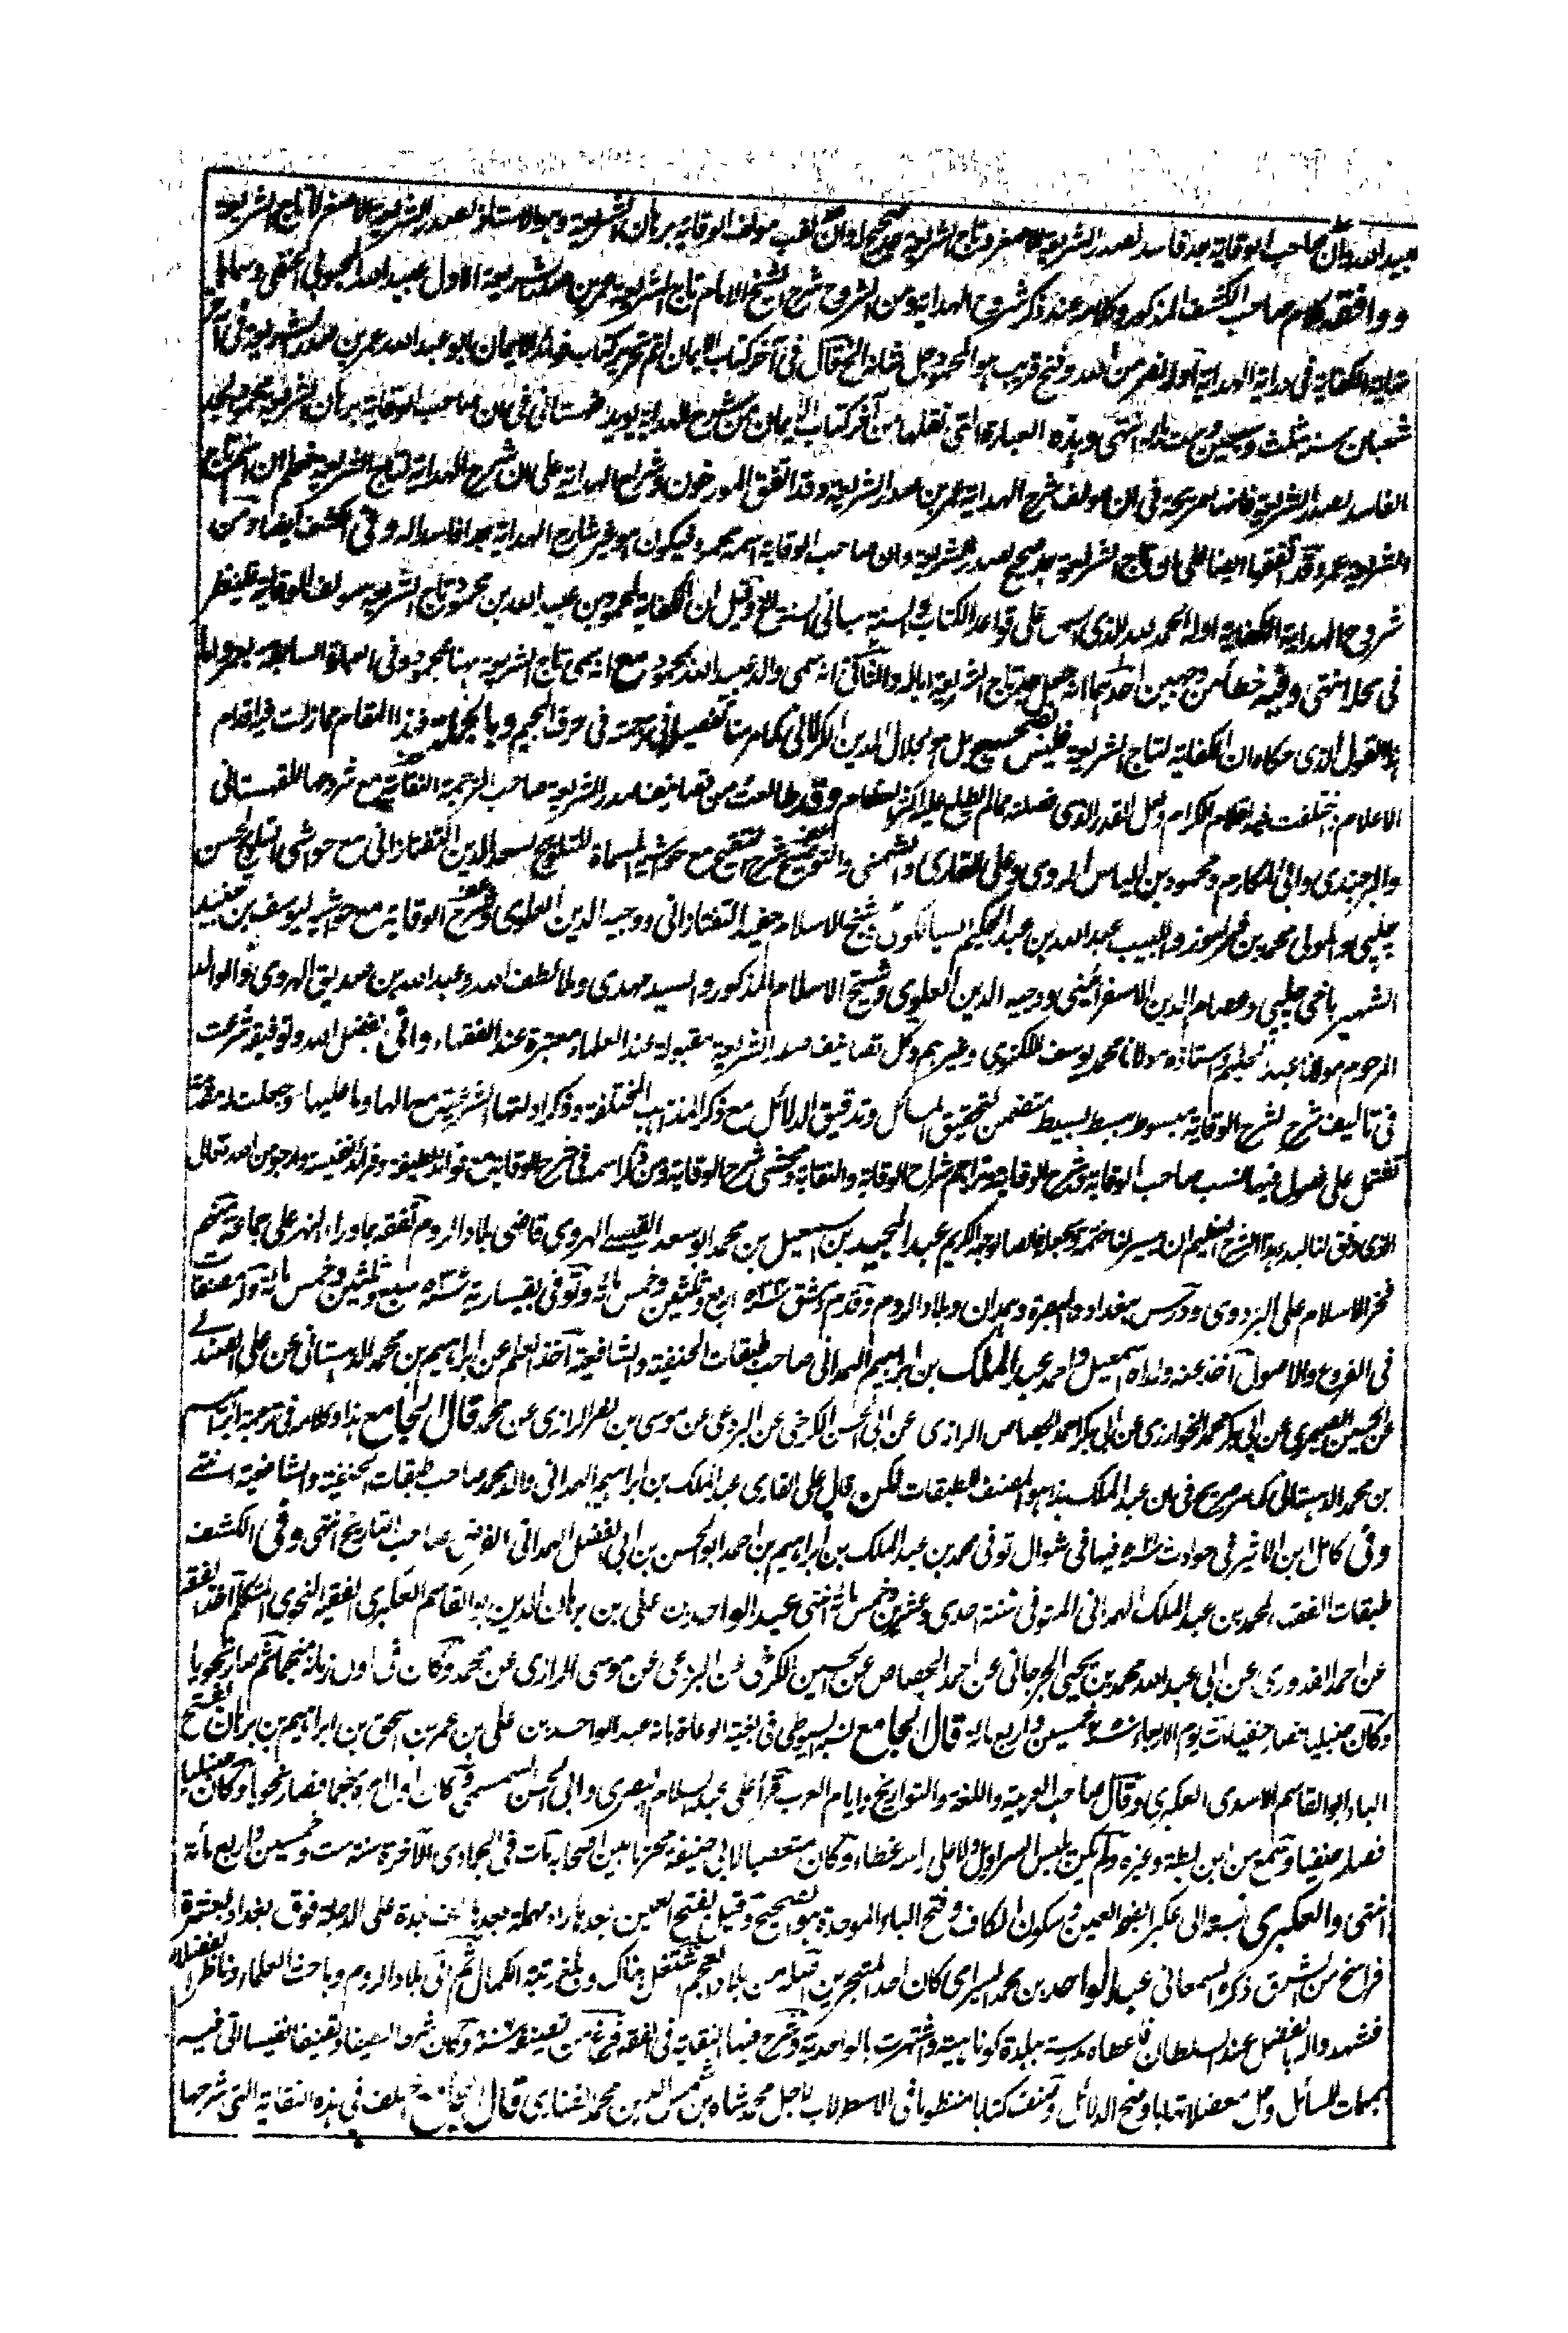 عبيد الله وان صاحب الوقاية جد فاسد لصدر الشريعة الاصغر وتاج الشريعة جد صحيح له وان لقب مؤلف الوقاية برهان الشريعة وهو الاستاذ لصدر الشريعة الاصغر لا تاج الشريعة
ووافقه كلام صاحب الكشف المذكور وكلامه عند ذكر شروح الهداية ومن الشروح شرح الشيخ الامام تاج الشريعة عمر بن صدر الشريعة الاول عبيد الله المحبوبي الحنفي وسماه
نهاية الكفاية في دراية الهداية اوله نصر من الله وفتح قريب هو المحمود جل شانه الخ قال في آخر كتاب الايمان اتم تحرير كتاب فوائد الايمان ابو عبد الله عمر بن صدر الشريعة في
شعبان سنة ثلث وسبعين وست مائة انتهى وهذه العبارة التي نقلها من آخر كتاب الايمان من شرح الهداية يؤيد قهستاني في ان صاحب الوقاية برهان الشريعة محمود الجد
الفاسد لصدر الشريعة فانها صريحة في ان مؤلف شرح الهداية عمر بن صدر الشريعة وقد اتفق المورخون وشراح الهداية على ان شرح الهداية لتاج الشريعة فعلم ان اسم تاج
الشريعة عمر وقد اتفقوا ايضا على ان تاج الشريعة جد صحيح لصدر الشريعة وان صاحب الوقاية اسمه محمود فيكون هو غير شارح الهداية جدا فاسدا له وفي الكشف ايضا ومن
شروح الهداية الكفاية اوله الحمد لله الذي اسس على قواعد الكتاب والسنة مباني السنن الخ وقيل ان الكفاية لمحمود بن عبيد الله بن محمود تاج الشريعة مؤلف الوقاية فلينظر
في محله انتهى وفيه خطأ من وجهين احدهما انه جعل تاج الشريعة اباله والثاني انه سمى والد عبيد الله بمحمود مع انه سمى تاج الشريعة ههنا بمحمود وفي العبارة السابقة بعمر واما
هذا القول الذي حكاه ان الكفاية لتاج الشريعة فليس بصحيح بل هو لجلال الدين الكرلاني كما مر منا تفصيله في ترجمته في حرف الجيم وبالجملة فهذا المقام مما زلت فيه اقدام
الاعلام واختلفت فيه اقلام الكرام ولعل القدر الذي فصلته مما لم يطلع عليه اكثرهم وقد طالعت من تصانيف صدر الشريعة صاحب الترجمة النقاية مع شروحها للقهستاني
والبرجندي وابي المكارم ومحمود بن الياس الرومي وعلي القاري والشمني والتوضيح شرح التنقيح مع حواشيه المسماة بالتلويح لسعد الدين التفتازاني مع حواشي التلويح لحسن
چلپي والمولى محمد بن فرامرز واللبيب عبد الله بن عبد الحكيم السيالكوتي وشيخ الاسلام حفيد التفتازاني ووجيه الدين العلوي وشرح الوقاية مع حواشيه ليوسف بن جنيد
الشهير باخي چلپي وعصام الدين الاسفرائيني ووجيه الدين العلوي وشيخ الاسلام المذكور والسيد مهدي وملا لطف الله وعبد الله بن صديق الهروي والوالد
المرحوم مولانا عبد الحليم واستاذه مولانا محمد يوسف اللكنوي وغيرهم وكل تصانيف صدر الشريعة مقبولة عند العلماء معتبرة عند الفقهاء واني بفضل الله وتوفيقه شرعت
في تاليف شرح لشرح الوقاية مبسوط بسط البسيط متضمن لتحقيق المسائل وتدقيق الدلائل مع ذكر المذاهب المختلفة وذكر ادلتها الشرعية مع مالها وما عليها وجعلت له مقدمة
تشتمل على فصول فيها نسب صاحب الوقاية وشرح الوقاية وتراجم شراح الوقاية والنقاية ومحشي شرح الوقاية ومن ذكر اسمه في شرح الوقاية من فوائد لطيفة وفرائد نفيسة وارجو من الله تعالى
الذي وفق لنا لبدء هذا الشرح العظيم ان ييسر لنا ختمه ويجعله خالصا لوجهه الكريم عبد المجيد بن اسمعيل بن محمد ابو سعد القيسي الهروي قاضي بلاد الروم تفقه بماوراء النهر على جماعة منهم
فخر الاسلام علي البزدوي ودرس ببغداد والبصرة وهمدان وبلاد الروم وقدم دمشق سنة ٥٣٤ اربع وثلثين وخمس مائة وتوفي بقيسارية سنة ٥٣٧ سبع وثلثين وخمس مائة وله مصنفات
في الفروع والاصول اخذ عنه ولداه اسمعيل واحمد عبد الملك بن ابراهيم الهمداني صاحب طبقات الحنفية والشافعية اخذ العلم عن ابراهيم بن محمد الدهستاني عن علي الصندلي
عن الحسين الصيمري عن ابي بكر محمد الخوارزمي عن ابي بكر احمد الجصاص الرازي عن ابي الحسن الكرخي عن البردعي عن موسى بن نصر الرازي عن محمد قال الجامع هذا وكلامه في ترجمة ابراهيم
بن محمد الدهستاني كما مر صريح في ان عبد الملك هذا هو المصنف للطبقات لكن قال علي القاري عبد الملك بن ابراهيم الهمداني والد محمد صاحب طبقات الحنفية والشافعية انتهى
وفي كامل ابن الاثير في حوادث سنة ٥٢١ فيها في شوال توفي محمد بن عبد الملك بن ابراهيم بن احمد ابو الحسن بن ابي الفضل الهمداني الفرضي صاحب التاريخ انتهى وفي الكشف
طبقات الفقهاء لمحمد بن عبد الملك الهمداني المتوفى سنة احدى وعشرين وخمس مائة انتهى عبد الواحد بن علي بن برهان الدين ابو القاسم العكبري الفقيه النحوي المتكلم اخذ الفقه
عن احمد القدوري عن ابي عبد الله محمد بن يحيى الجرجاني عن احمد الجصاص عن الحسين الكرخي عن البردعي عن موسى الرازي عن محمد وكان في اول زمانه منجما ثم صار نحويا
وكان حنبليا فصار حنفيا مات يوم الاربعاء سنة ٤٥٠ خمسين واربع مائة قال الجامع نسبه السيوطي في بغية الوعاة بانه عبد الواحد بن علي بن عمر بن اسحق بن ابراهيم بن برهان بفتح
الباء ابو القاسم الاسدي العكبري وقال صاحب العربية واللغة والتواريخ وايام العرب قرأ على عبد السلام البصري وابي الحسن السمسمي وكان اول امره منجما فصار نحويا وكان حنبليا
فصار حنفيا وسمع من ابن بطة وغيره ولم يكن يلبس السراويل ولا على راسه غطاء وكان متعصبا لابي حنيفة محترما بين اصحابه مات في الجمادى الآخرة سنة ست وخمسين واربع مائة
انتهى والعكبري نسبة الى عكبرا بضم العين وسكون الكاف وفتح الباء الموحدة هو الصحيح وقيل بفتح العين بعدها راء مهملة بعدها الف بلدة على الدجلة فوق بغداد بعشرة
فراسخ من الشرق ذكره السمعاني عبد الواحد بن محمد السيرامي كان احد المتبحرين اقبله من بلاد العجم اشتغل هناك وبلغ رتبة الكمال ثم اتى بلاد الروم وباحث العلماء وناظر الفضلاء
فشهدوا له بالفضل عند السلطان فاعطاه مدرسة ببلدة كوتاهية واشتهرت بالواحدية وشرح فيها النقاية في الفقه فرغ من تصنيفه سنة وكان شرحا لطيفا وتصنيفا نفيسا اتى فيه
بمهمات المسائل وحل معضلاتها باوضح الدلائل وصنف كتابا منظوما في الاسطرلاب لاجل محمد شاه بن شمس الدين محمد الفناري قال الجامع اختلف في هذه النقاية التي شرحها